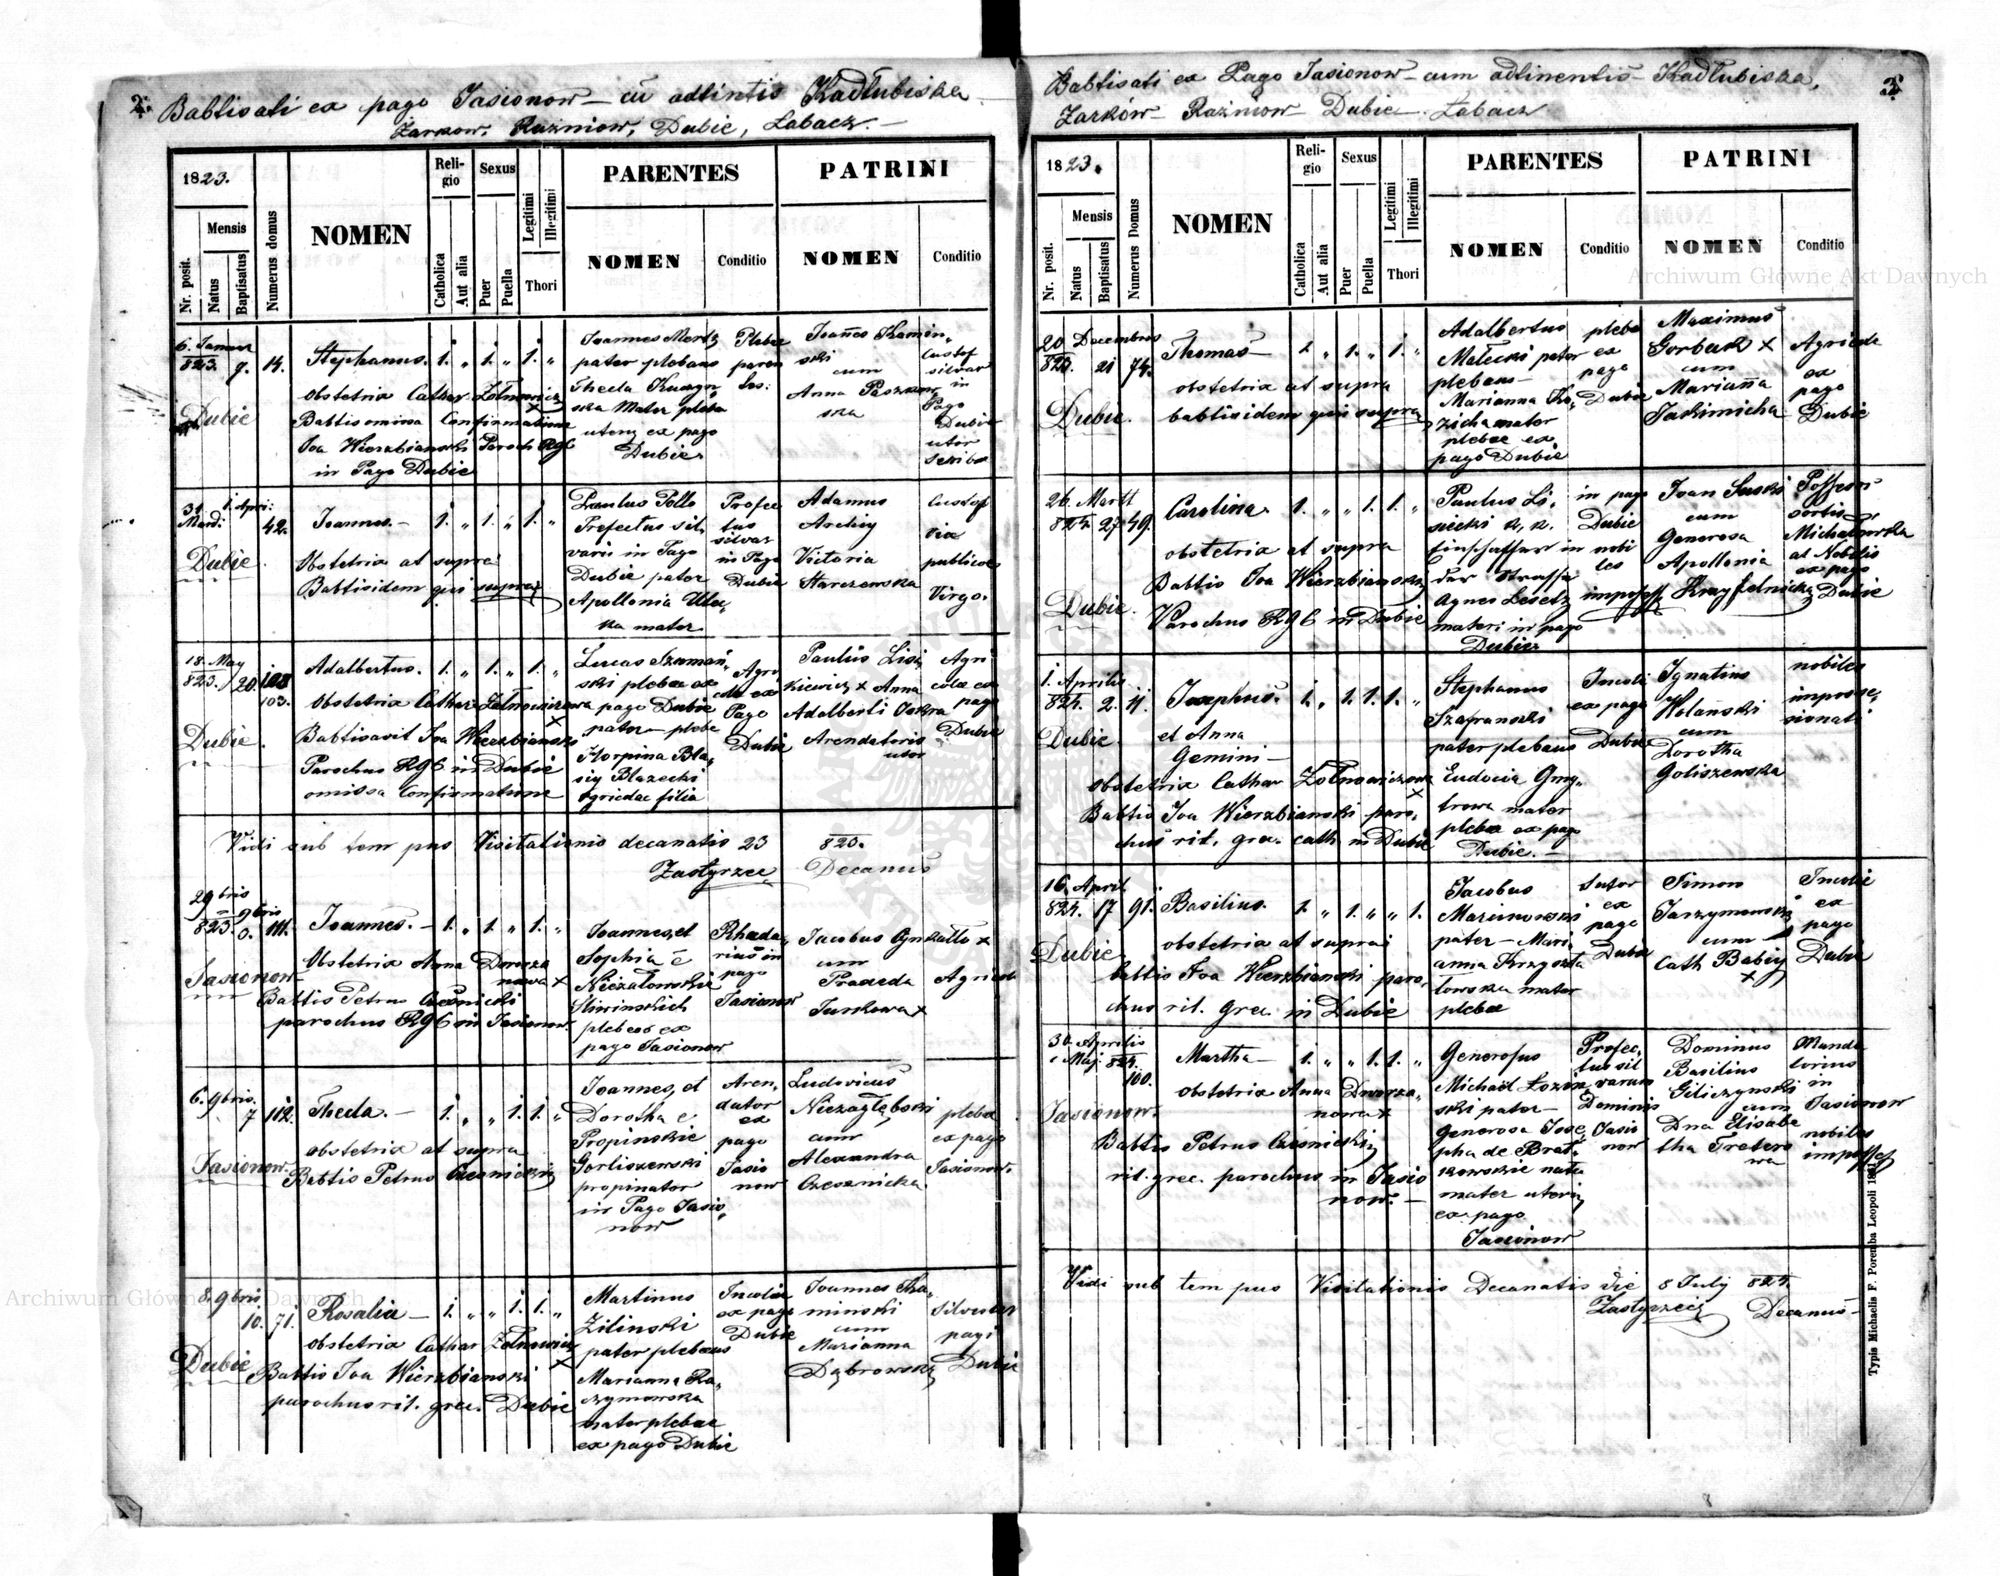 2.
Babtisati ex pago Jasionow cū adtintis Kadłubiska
Zarkow, Ruzniow, Dubie, Łabacz.
1823.
Nr. posit.
Mensis
Natus
Baptisatus
Numerus domus
NOMEN
Religio
Catholica
Aut alia
Sexus
Puer
Puella
Legitimi
Illegitimi
Thori
PARENTES
NOMEN
Conditio
PATRINI
NOMEN
Conditio
6. Januar
823. 7. 14.
Dubie
Stephanus. 1. „ 1. „ 1. „
obstetrix Cathar Zołnowicz
x
Babtis omissa Confirmatione
Iva Wierzbianski Paroch RGC
in Pago Dubie
Joannes Mertz
pater plebaus
Thecla
ska Mater pleba
uterq ex pago
Dubie
Plebei
paren
tes:
Joañes Kamin„
ski
cum
Anna Paszkow
ska
Custof
silvar
in
Pago
Dubie
utor
scriba
31 1. Apri:
Marti: 42.
Dubie
Joannes. 1. „ 1. „ 1. „
Obstetrix at supra
Babtisidem qui supra
Paulus Tollo
Prefectus sil„
varis in Pago
Dubie pater
Apollonia Ula„
ka mater
Profec
tus
silvar
in Pago
Dubie
Adamus
Archiy
Victoria
Starczewska
Custof
via
publicos
Virgo.
18. May
823. 20. 108
103.
Dubie
Adalbertus. 1. „ 1. „ 1. „
Obstetrix Cathar Zołnowiczowa
x
Babtisavit Iva Wierzbianski
Parochus RGC in Dubie
omissa Confirmatione
Lucas Szuman„
ski plebae ex
pago Dubie
pater plebe
Horpina Bła„
siy Błazecki
agricolae filia
Agri
cola ex
Pago
Dubie
Paulus Lisi
kiewicz x Anna
Adalberti Iskra
Arendatoris
utor
Agri
cola ex
pago
Dubie
Vidi sub tem pus Visitationis decanatis 23 823.
Zastyrzec Decanus
29 bris
823. 9bris
0. 111.
Jasionow
Joannes. 1. „ 1. „ 1. „
Obstetrix Anna Dworza
nowa x
Babtis Petrus Czesnicki
parochus RGC in Jasionow
Joannes, et
Sophia c
Niezałowskie
Sliwinskich
plebeos ex
pago Jasionow
Rheda„
rius in
pago
Jasionow
Jacobus Cynkatto x
cum
Praxeda
Turkowa x
Agricola
6. 9bris.
7 112.
Jasionow
Thecla. 1. „ „ 1. 1. „
obstetrix at supra
Babtis Petrus Czesnicki
Joannes, et
Dorotha c
Propinskie
Gorliszewski
propinator
in Pago Jasio„
now
Aren„
dator
ex
pago
Jasio
now
Ludovicus
Niezagłębski
cum
Alexandra
Czesznicka.
plebae
ex pago
Jasionow.
8. 9bris
10. 71.
Dubie
Rosalia 1. „ „ 1. 1. „
obstetrix Cathar Zołnowicz
x
Babtis Iva Wierzbianski
parochus rit. grec. Dubie
Martinus
Zilinski
pater plebaus
Marianna Ra„
czymowska
mater plebae
ex pago Dubie
Incolae
ex pago
Dubie
Joannes Tka„
minski
cum
Marianna
Dąbrowska
Silvester
pagi
Dubie
3.
Babtisati ex Pago Jasionow cum adtinentis Kadłubiska,
Zarków Razniow Dubie Łabacz
1823.
Nr. posit.
Mensis
Natus
Baptisatus
Numerus Domus
NOMEN
Religio
Catholica
Aut alia
Sexus
Puer
Puella
Legitimi
Illegitimi
Thori
PARENTES
NOMEN
Conditio
PATRINI
NOMEN
Conditio
20 Decembris
823. 21 74.
Dubie.
Thomas 1. „ 1. „ 1. „
obstetrix at supra
babtisidem qui supra
Adalbertus
Małecki pater
plebaus
Marianna Ko„
zicha mater
plebae ex
pago Dubie
plebe
ex
pago
Dubie
Maximus
Gorbak x
cum
Marianna
Jackimicha
Agricola
ex
pago
Dubie
26. Martt
824. 27 49.
Dubie.
Carolina. 1. „ „ 1. 1. „
obstetrix at supra
Babtis Iva Wierzbiansky
Parochus RGC in Dubie
Paulus Li„
siecki k. k.
Einschaffar in
der Strasse
Agnes Lesetz
materi in pago
Dubie
in pago
Dubie
nobi
les
imposs
Ivan Suski
cum
Generosa
Apollonia
Krayzelnicka
Possessor
sortis
Michałowska
at Nobilis
ex pago
Dubie
1. Aprilis
824. 2. 11.
Dubie
Josephus. 1. „ 1. 1. 1. „
et Anna
Gemini
obstetrix Cathar Zołnowiczowa
x
Babtis Iva Wierzbianski paro„
chus rit. grec. cath in Dubie
Stephanus
Szafranski
pater plebaus
Eudocia Gmy„
trowa mater
plebae ex pago
Dubie.
Incoli
ex pago
Dubie
Ignatius
Wolański
cum
Dorotha
Goliszewska
nobiles
imposse„
sionati
16. April
824. 17 91.
Dubie
Basilius. 1. „ 1. „ „ 1.
obstetrix at supra
babtis Iva Wierzbianski paro„
chus rit. grec. in Dubie
Jacobus
Marinowski
pater Mari
anna Krzyszta
łowska mater
plebae
Sutor
ex
pago
Dubie
Simon
Jarzymowski
cum
Cath Babiy
x
Incolae
ex
pago
Dubie
30. Aprilis
1 Maj. 824.
100.
Jasionow.
Martha 1. „ „ 1. 1. „
obstetrix Anna Dworza„
nowa x
Babtis Petrus Czesnicki
rit. grec. parochus in Jasio
now.
Generosus
Michael Łozin
ski pater
generosa Jose
pha de Brat„
kowskie nata
mater uteriq
ex pago
Jasionow
Profec„
tus sil
varum
Dominis
Jasio
now
Dominus
Basilius
Giliczynski
cum
Dna Elisabe
tha Tretero
wa
Manda
torius
in
Jasionow
nobiles
imposs
Vidi sub tem pus Visitationis Decanatis die 8 July 824.
Zastyrzec Decanus
Typis Michaelis F. Poremba Leopoli
Archiwum Główne Akt Dawnych
Archiwum Główne Akt Dawnych